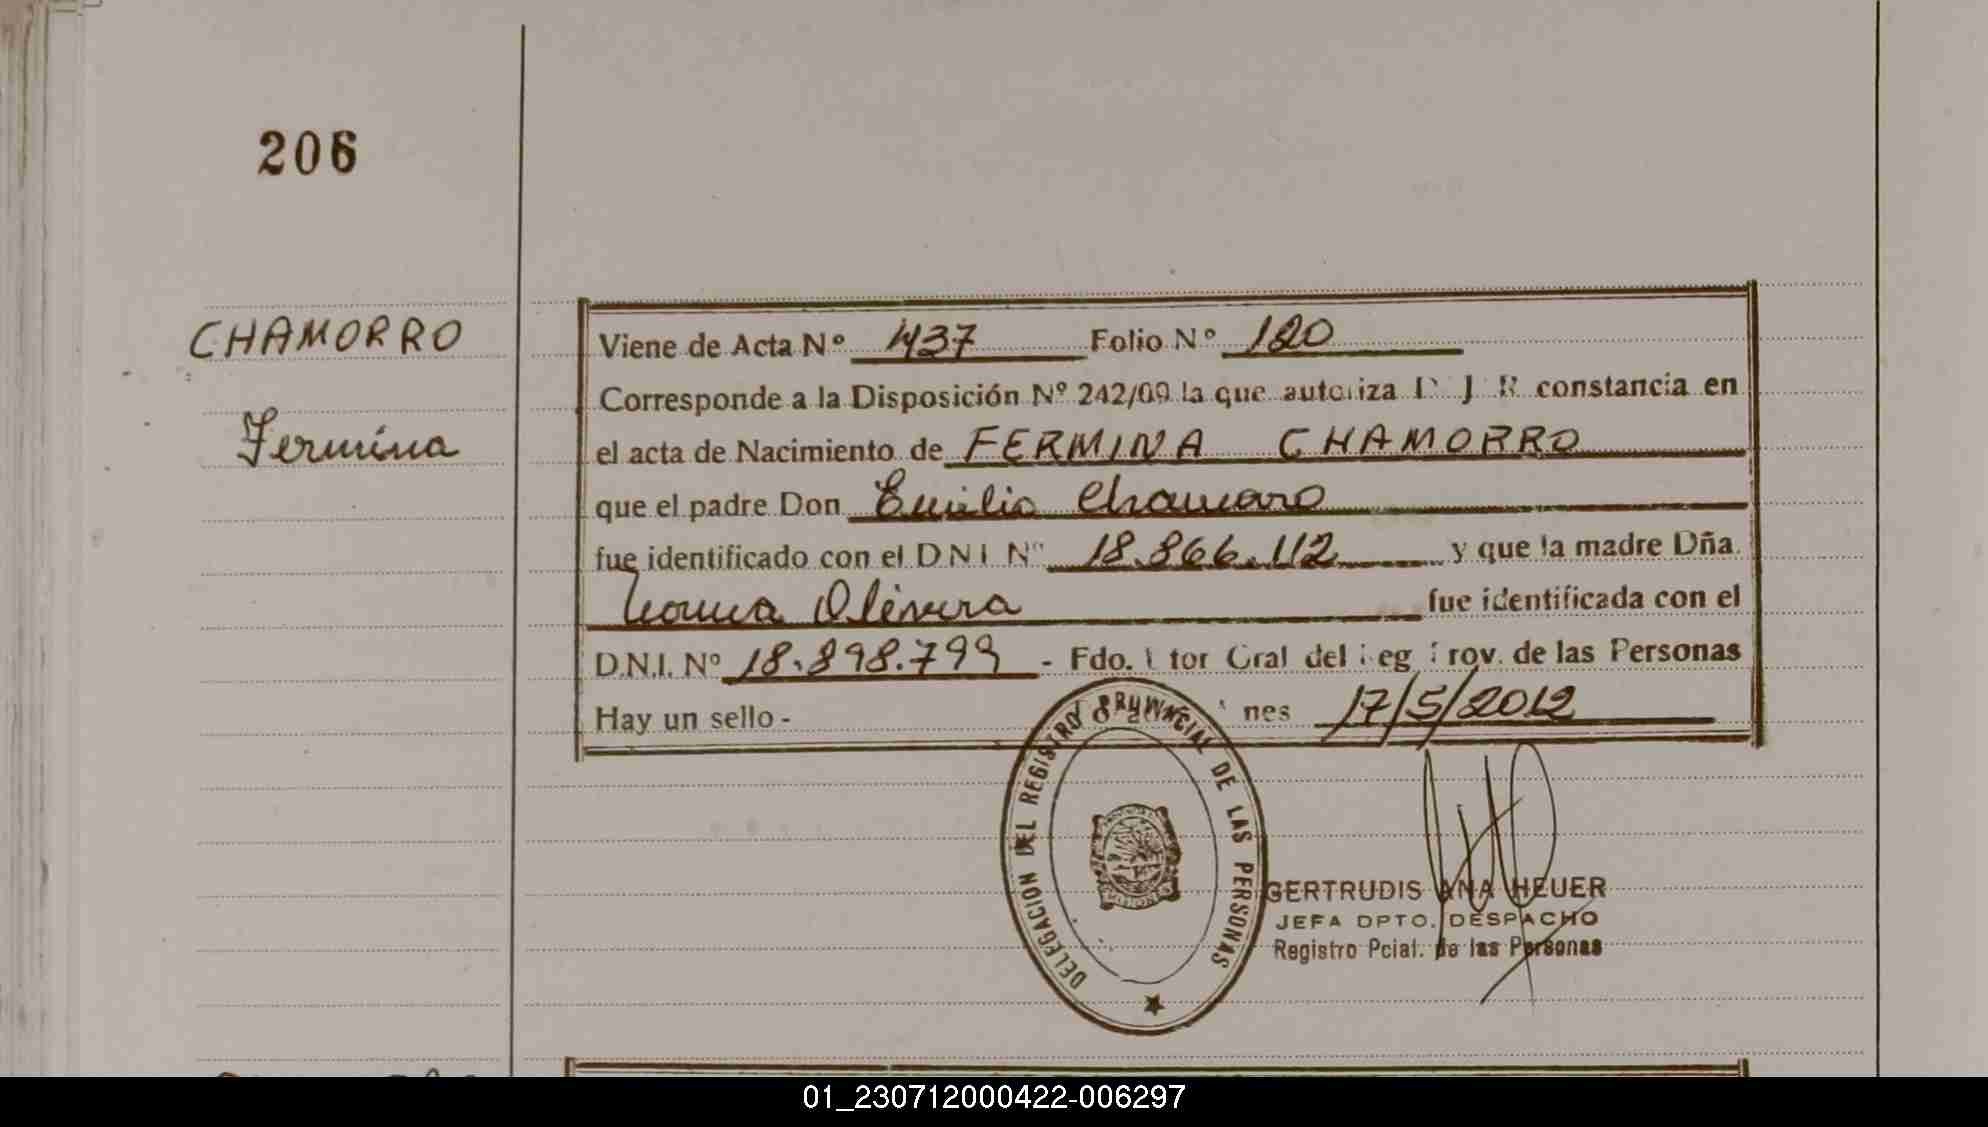 206
CHAMORRO
Fermina
Viene de Acta Nº 437 Folio Nº 120
Corresponde a la Disposición Nº 242/09 la que autoriza D J R constancia en
el acta de Nacimiento de FERMINA CHAMORRO
que el padre Don Emilio Chamorro
fue identificado con el D N I Nº 18.866.112 y que la madre Dña.
Norma Olivera fue identificada con el
D.N.I. Nº 18.898.799 - Fdo. tor Gral del eg rov. de las Personas
Hay un sello - nes 17/5/2012
DELEGACION DEL REGISTRO PROVINCIAL DE LAS PERSONAS
GERTRUDIS ANA HEUER
JEFA DPTO. DESPACHO
Registro Pcial. de las Personas
01_230712000422-006297